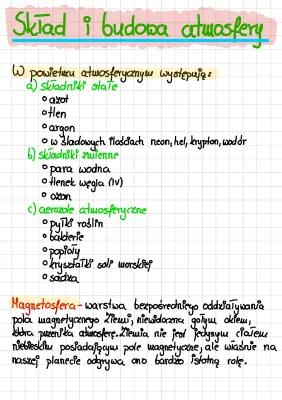 Skład i budowa atmosfery
W powietrzu atmosferycznym występują:
a) składniki stałe
azot
tlen
argon
w śladowych ilościach neon, hel, krypton, wodór
b) składniki zmienne
para wodna
tlenek węgla (IV)
ozon
c) aerozole atmosferyczne
pyłki roślin
bakterie
popioły
kryształki soli morskiej
sadza
Magnetosfera - warstwa bezpośredniego oddziaływania
pola magnetycznego Ziemi, niewidoczna gołym okiem,
która przenika atmosferę. Ziemia nie jest jedynym ciałem
niebieskim posiadającym pole magnetyczne, ale właśnie na
naszej planecie odgrywa ono bardzo istotną rolę.